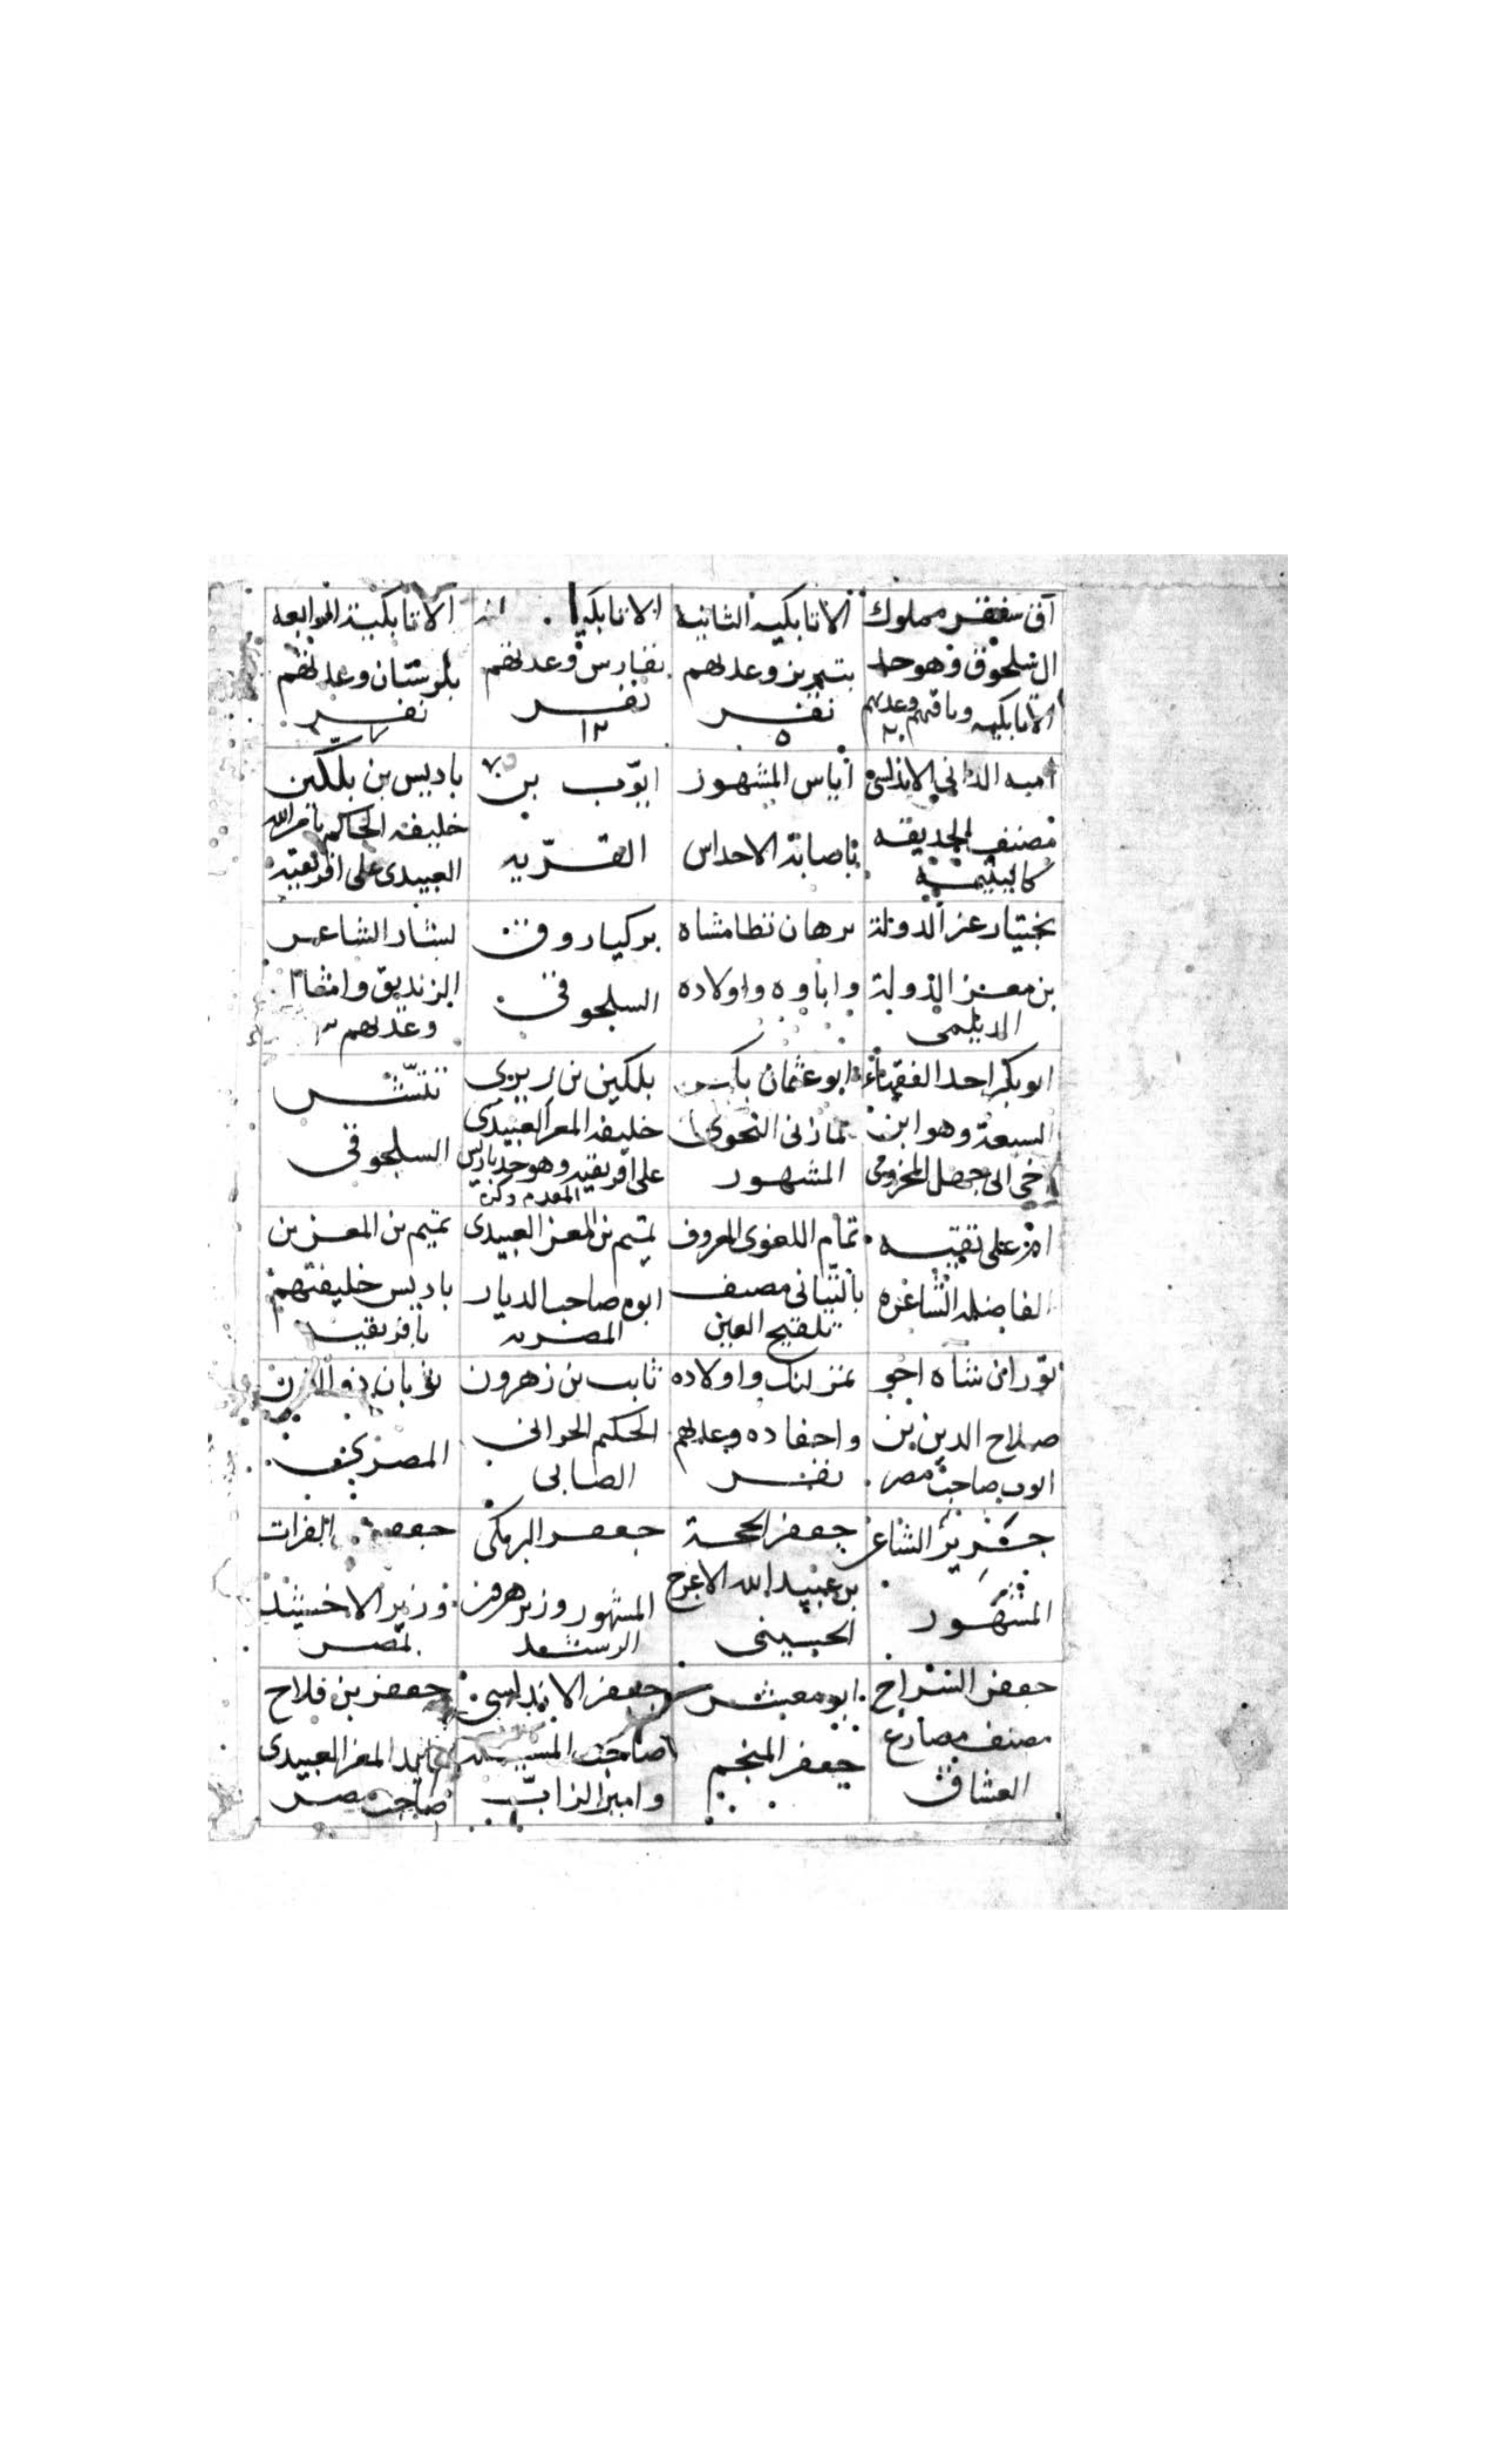 آق سنقر مملوك
ال سلجوق وهو جد
الاتابكيه وباقيهم وعدتهم
٢٠
الاتابكيه الثانيه
بتبريز وعدتهم
نفر
٥
الاتابكيا
بفارس وعدتهم
نفر
١٢
الاتابكية الرابعه
بلرستان وعدتهم
نفر
اميه الداني الاندلسي
مصنف الحديقه
كاليتيمة
اياس المشهور
باصابة الاحداس
ايوب بن
القرّيه
باديس بن بلكين
خليفه الحاكم بامر الله
العبيدى على افريقيه
بختيار عز الدولة
بن معز الدولة
الديلمى
برهان نظامشاه
واباوه واولاده
بركياروق
السلجوقي
بشار الشاعر
الزنديق
وعدتهم
ابو بكر احد الفقهاء
السبعة وهو ابن
اخي ابى جهل المخزومى
ابو عثمان بكر
المازنى النحوى
المشهور
بلكين بن زيرى
خليفه المعز العبيدى
على افريقيه وهو جد باديس
المقدم ذكره
تتش
السلجوقي
ام على تقيه
الفاضله الشاعره
تمام اللغوى المعروف
بالتيانى مصنف
تلقيح العين
تميم بن المعز العبيدى
ابوه صاحب الديار
المصريه
تميم بن المعز بن
باديس خليفتهم
بافريقيه
توران شاه اخو
صلاح الدين بن
ايوب صاحب مصر
تمرلنك واولاده
واحفاده وعدتهم
نفر
ثابت بن زهرون
الحكيم الحراني
الصابى
ثوبان ذو النون
المصرى
جرير الشاعر
المشهور
جعفر الحجة
بن عبيد الله الاعرج
الحسينى
جعفر البرمكى
المشهور وزير هرون
الرشيد
جعفر الفرات
وزير الاخشيد
بمصر
جعفر السراج
مصنف مصارع
العشاق
ابو معشر
جعفر المنجم
جعفر الاندلسى
صاحب المسيله
وامير الزاب
جعفر بن فلاح
قايد المعز العبيدى
صاحب مصر